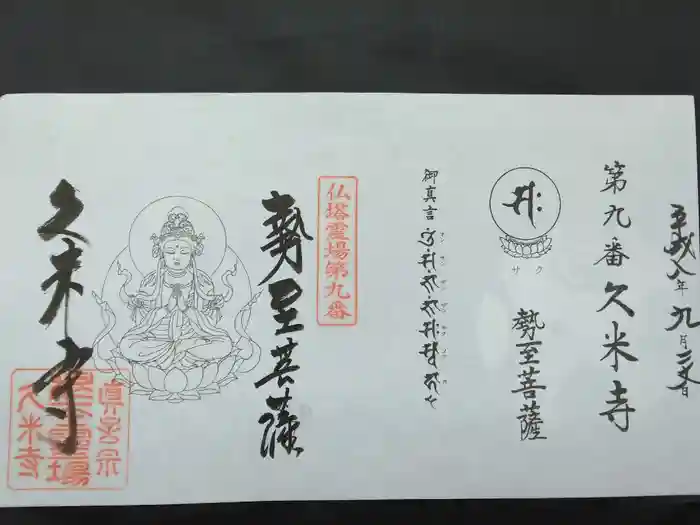 平成八年九月
第九番久米寺
サク
勢至菩薩
御真言
仏塔霊場第九番
勢至菩薩
久米寺
真言宗
霊場
久米寺